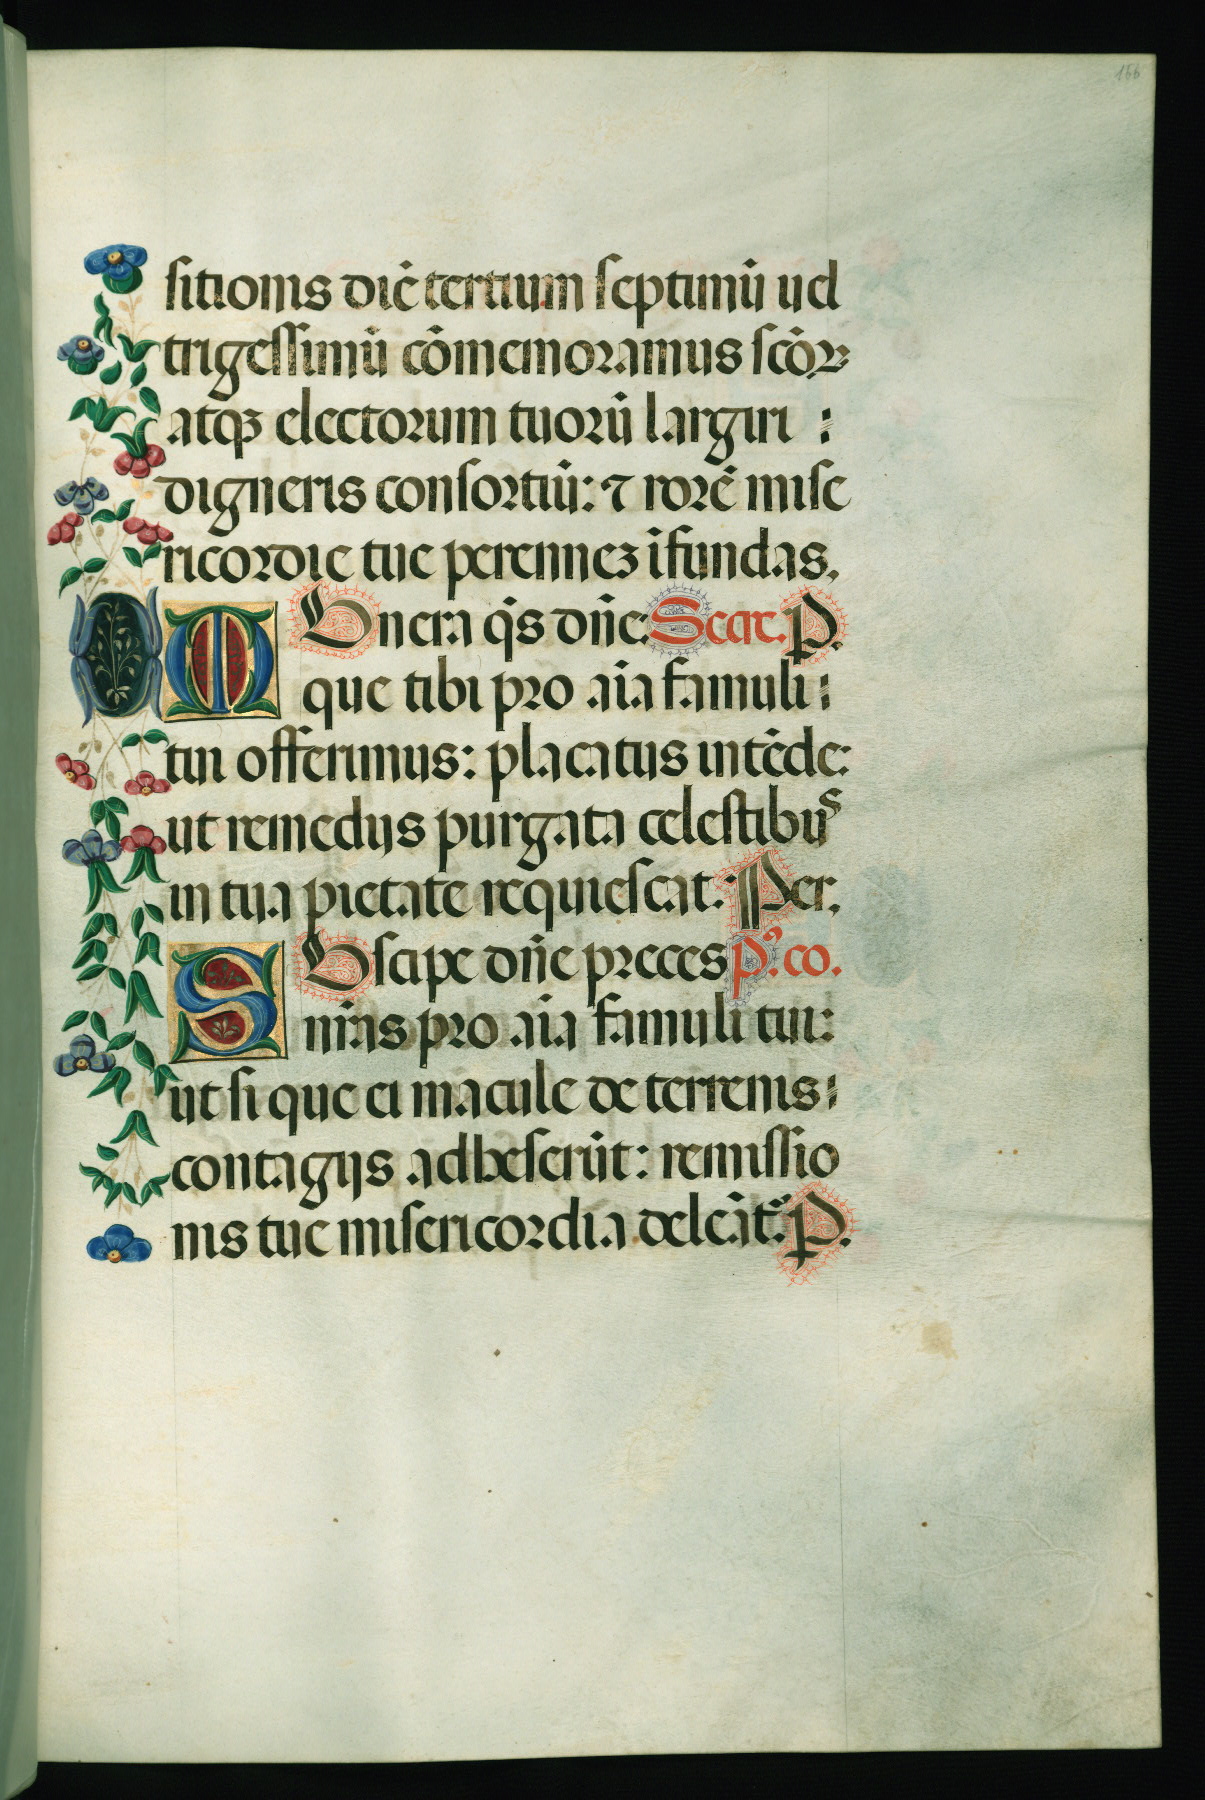 166
sitionis diē tertium septimū ud
trigessimū cōmemoramus scōꝝ
atqꝫ electorum tuorū largiri :
digneris consortiū: ⁊ rorē mise
ricordie tue perennez īfundas,
MUnera q̄s dn̄e: Secrt. P.
que tibi pro aīa famuli :
tui offerimus: placatus intēde:
ut remedijs purgata celestibus
in tua pietate requiescat. Per,
SUscipe dn̄e preces pꝰ. co.
nr̄as pro aīa famuli tui:
ut si que ei macule de terrenis :
contagijs adheserūt: remissio
nis tue misericordia deleāt. P.